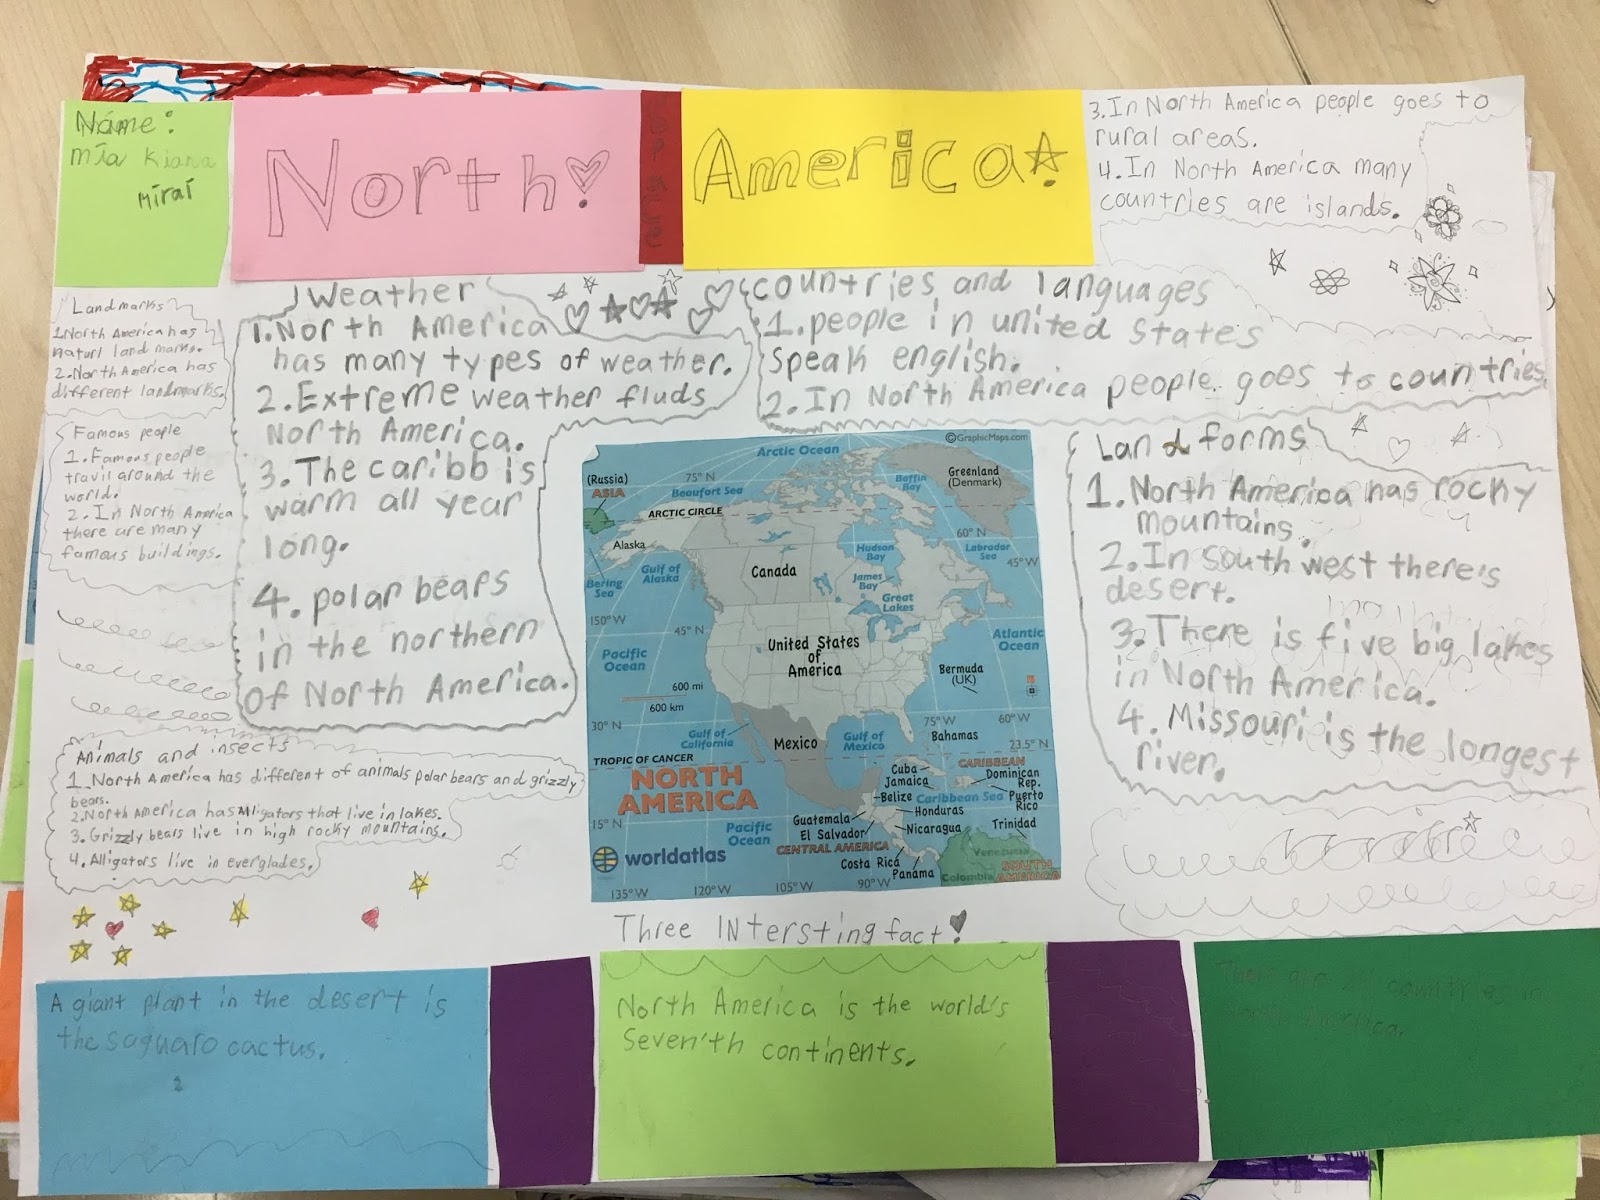 Name:
Mia Kiana
Mirai
North!
America!
3.In North America people goes to
rural areas.
4.In North America many
countries are islands.
Landmarks
1.North America has
naturl land marks.
2.North America has
different landmarks.
Famous people
1.Famous people
travil around the
world.
2.In North America
there are many
famous buildings.
Weather
1.North America
has many types of weather.
2.Extreme weather fluds
North America.
3.The caribb is
warm all year
long.
4.polar bears
in the northern
of North America.
countries and languages
1.people in united states
speak english.
2.In North America people goes to countries
Land forms
1.North America has rocky
mountains.
2.In south west there's
desert.
3.There is five big lakes
in North America.
4.Missouri is the longest
river.
Animals and insects
1.North America has different of animals polar bears and grizzly
bears.
2.North America has Alligators that live in lakes.
3.Grizzly bears live in high rocky mountains.
4.Alligators live in everglades.
©GraphicMaps.com
Arctic Ocean
(Russia)
ASIA
75° N
Beaufort Sea
Baffin
Bay
Greenland
(Denmark)
ARCTIC CIRCLE
60° N
Alaska
Bering
Sea
Gulf of
Alaska
Canada
Hudson
Bay
Labrador
Sea
45° W
James
Bay
Great
Lakes
150° W
45° N
Pacific
Ocean
United States
of
America
Atlantic
Ocean
Bermuda
(UK)
600 mi
600 km
30° N
Gulf of
California
Mexico
Gulf of
Mexico
75° W
60° W
Bahamas
23.5° N
TROPIC OF CANCER
NORTH
AMERICA
Cuba
Jamaica
Belize
CARIBBEAN
Dominican
Rep.
Puerto
Rico
Caribbean Sea
Honduras
Guatemala
El Salvador
Nicaragua
Trinidad
15° N
Pacific
Ocean
CENTRAL AMERICA
Costa Rica
Panama
Venezuela
Colombia
SOUTH
AMERICA
worldatlas
135° W
120° W
105° W
90° W
Three INtersting fact!
A giant plant in the desert is
the saguaro cactus.
North America is the world's
Seven'th continents.